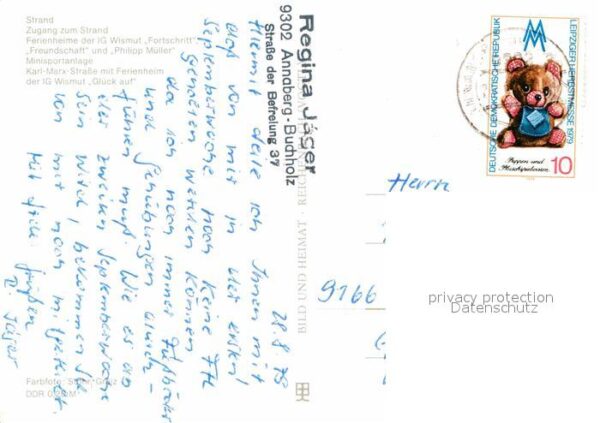 Strand
Zugang zum Strand
Ferienheime der IG Wismut „Fortschritt",
„Freundschaft" und „Philipp Müller"
Minisportanlage
Karl-Marx-Straße mit Ferienheim
der IG Wismut „Glück auf"
Regina Jäger
9302 Annaberg-Buchholz
Straße der Befreiung 37
28.8.79
Hiermit teile ich Ihnen mit
daß von mir in der ersten
Septemberwoche noch keine FH
gehalten werden können
da ich noch immer
und Schulungen durch-
führen muß. Wie es in
der zweiten Septemberwoche
sein wird, bekommen Sie
von mir noch mitgeteilt.
Mit frdl. Grüßen
R. Jäger
Farbfoto:
DDR
BILD UND HEIMAT
LEIPZIGER HERBSTMESSE 1979
DEUTSCHE DEMOKRATISCHE REPUBLIK
Puppen und
Plüschspielwaren
10
Herrn
9166
privacy protection
Datenschutz